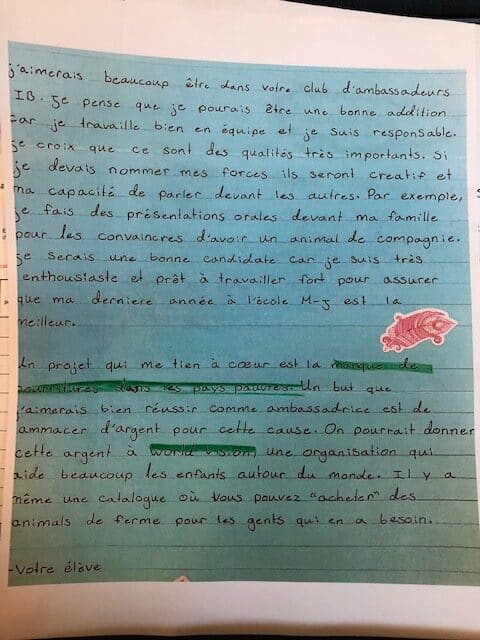 j'aimerais beaucoup être dans votre club d'ambassadeurs
IB. Je pense que je pourais être une bonne addition
car je travaille bien en équipe et je suis responsable.
Je croix que ce sont des qualités très importants. Si
je devais nommer mes forces ils seront creatif et
ma capacité de parler devant les autres. Par exemple,
je fais des présentations orales devant ma famille
pour les convaincres d'avoir un animal de compagnie.
Je serais une bonne candidate car je suis très
enthousiaste et prêt à travailler fort pour assurer
que ma derniere année à l'école M-J est la
meilleur.
Un projet qui me tien à cœur est la manque de
nourritures dans les pays pauvres. Un but que
j'aimerais bien réussir comme ambassadrice est de
ammacer d'argent pour cette cause. On pourrait donner
cette argent à World Vision, une organisation qui
aide beaucoup les enfants autour du monde. Il y a
même une catalogue où vous pouvez "acheter" des
animals de ferme pour les gents qui en a besoin.
-Votre élève